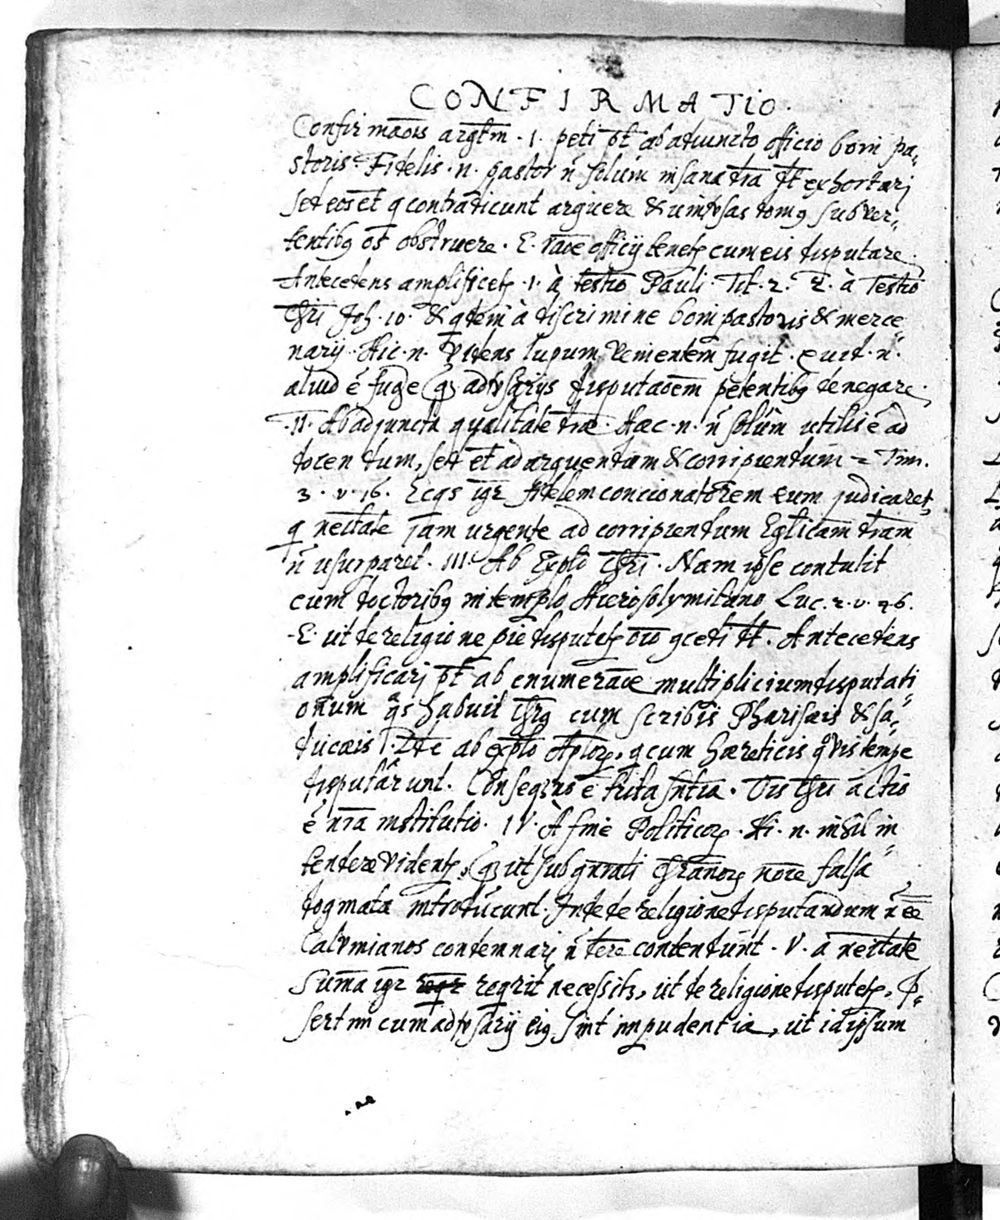 CONFIRMATIO
Confirmāōis argtm̄ . I. peti pt̄ ab adiuncto officio boni pa-
storis. Fidelis .n. pastor n̄ solùm in sana dr̄ia pt̄ exhortari
sed eos et̄ q contradicunt arguere & universas domꝯ subver-
tentibꝯ os obstruere. E. rāōe officij tenet̄ cum eis disputare.
Antecedens amplificet̄ .1. à testīo Pauli Tit. 2. 2. à Testīo
Chr̄i Joh. 10. & qdem à discrimine boni pastoris & merce-
narij. Hic .n. videns lupum venientem fugit. quid .n.
aliud ē fuge qꝫ adv̄sarijs disputāōem petentibꝯ denegare.
.II. Ab adjuncta qualitate dr̄iæ. Hæc .n. n̄ solùm utilis ē ad
docendum, sed et̄ ad arguendum & corripiendum 2 Tim.
3. v. 16. Ecqs igr̄ fidelem concionatorem eum judicaret,
q nec̄tate jam urgente ad corripiendum Eccl̄icam dr̄iam
n̄ usurparet. III. Ab Exp̄lo Chr̄i. Nam ipse contulit
cum doctoribꝯ in templo Hierosolymitano Luc. 2. v. 46.
E. ut de religione piè disputet̄ oīo qcedi dt̄. Antecedens
amplificari pt̄ ab enumerāōe multiplicium disputati-
onum qs habuit Chr̄ꝯ cum scribis Pharisæis & sa-
ducæis. Ite ab exp̄lo Ap̄loꝝ, q cum hæreticis qvis tempe
disputârunt. Conseqens ē trita sn̄tia. Oīs Chr̄i actio
ē nr̄a institutio. IV. À fine Politicoꝝ. Hi .n. nihil in-
tendere vident̄, qꝫ ut sub grati Chr̄ianoꝝ noīe falsa
dogmata introducunt. Inde de religione disputandum n̄ ēē
Calvinianos condemnari n̄ dere contendunt. V. à nec̄tate
Suma igr̄ reqrit necessitꝫ, ut de religione disputet̄, p̄-
sertim cum adv̄sarij eiꝯ sint impudentiæ, ut id ipsum